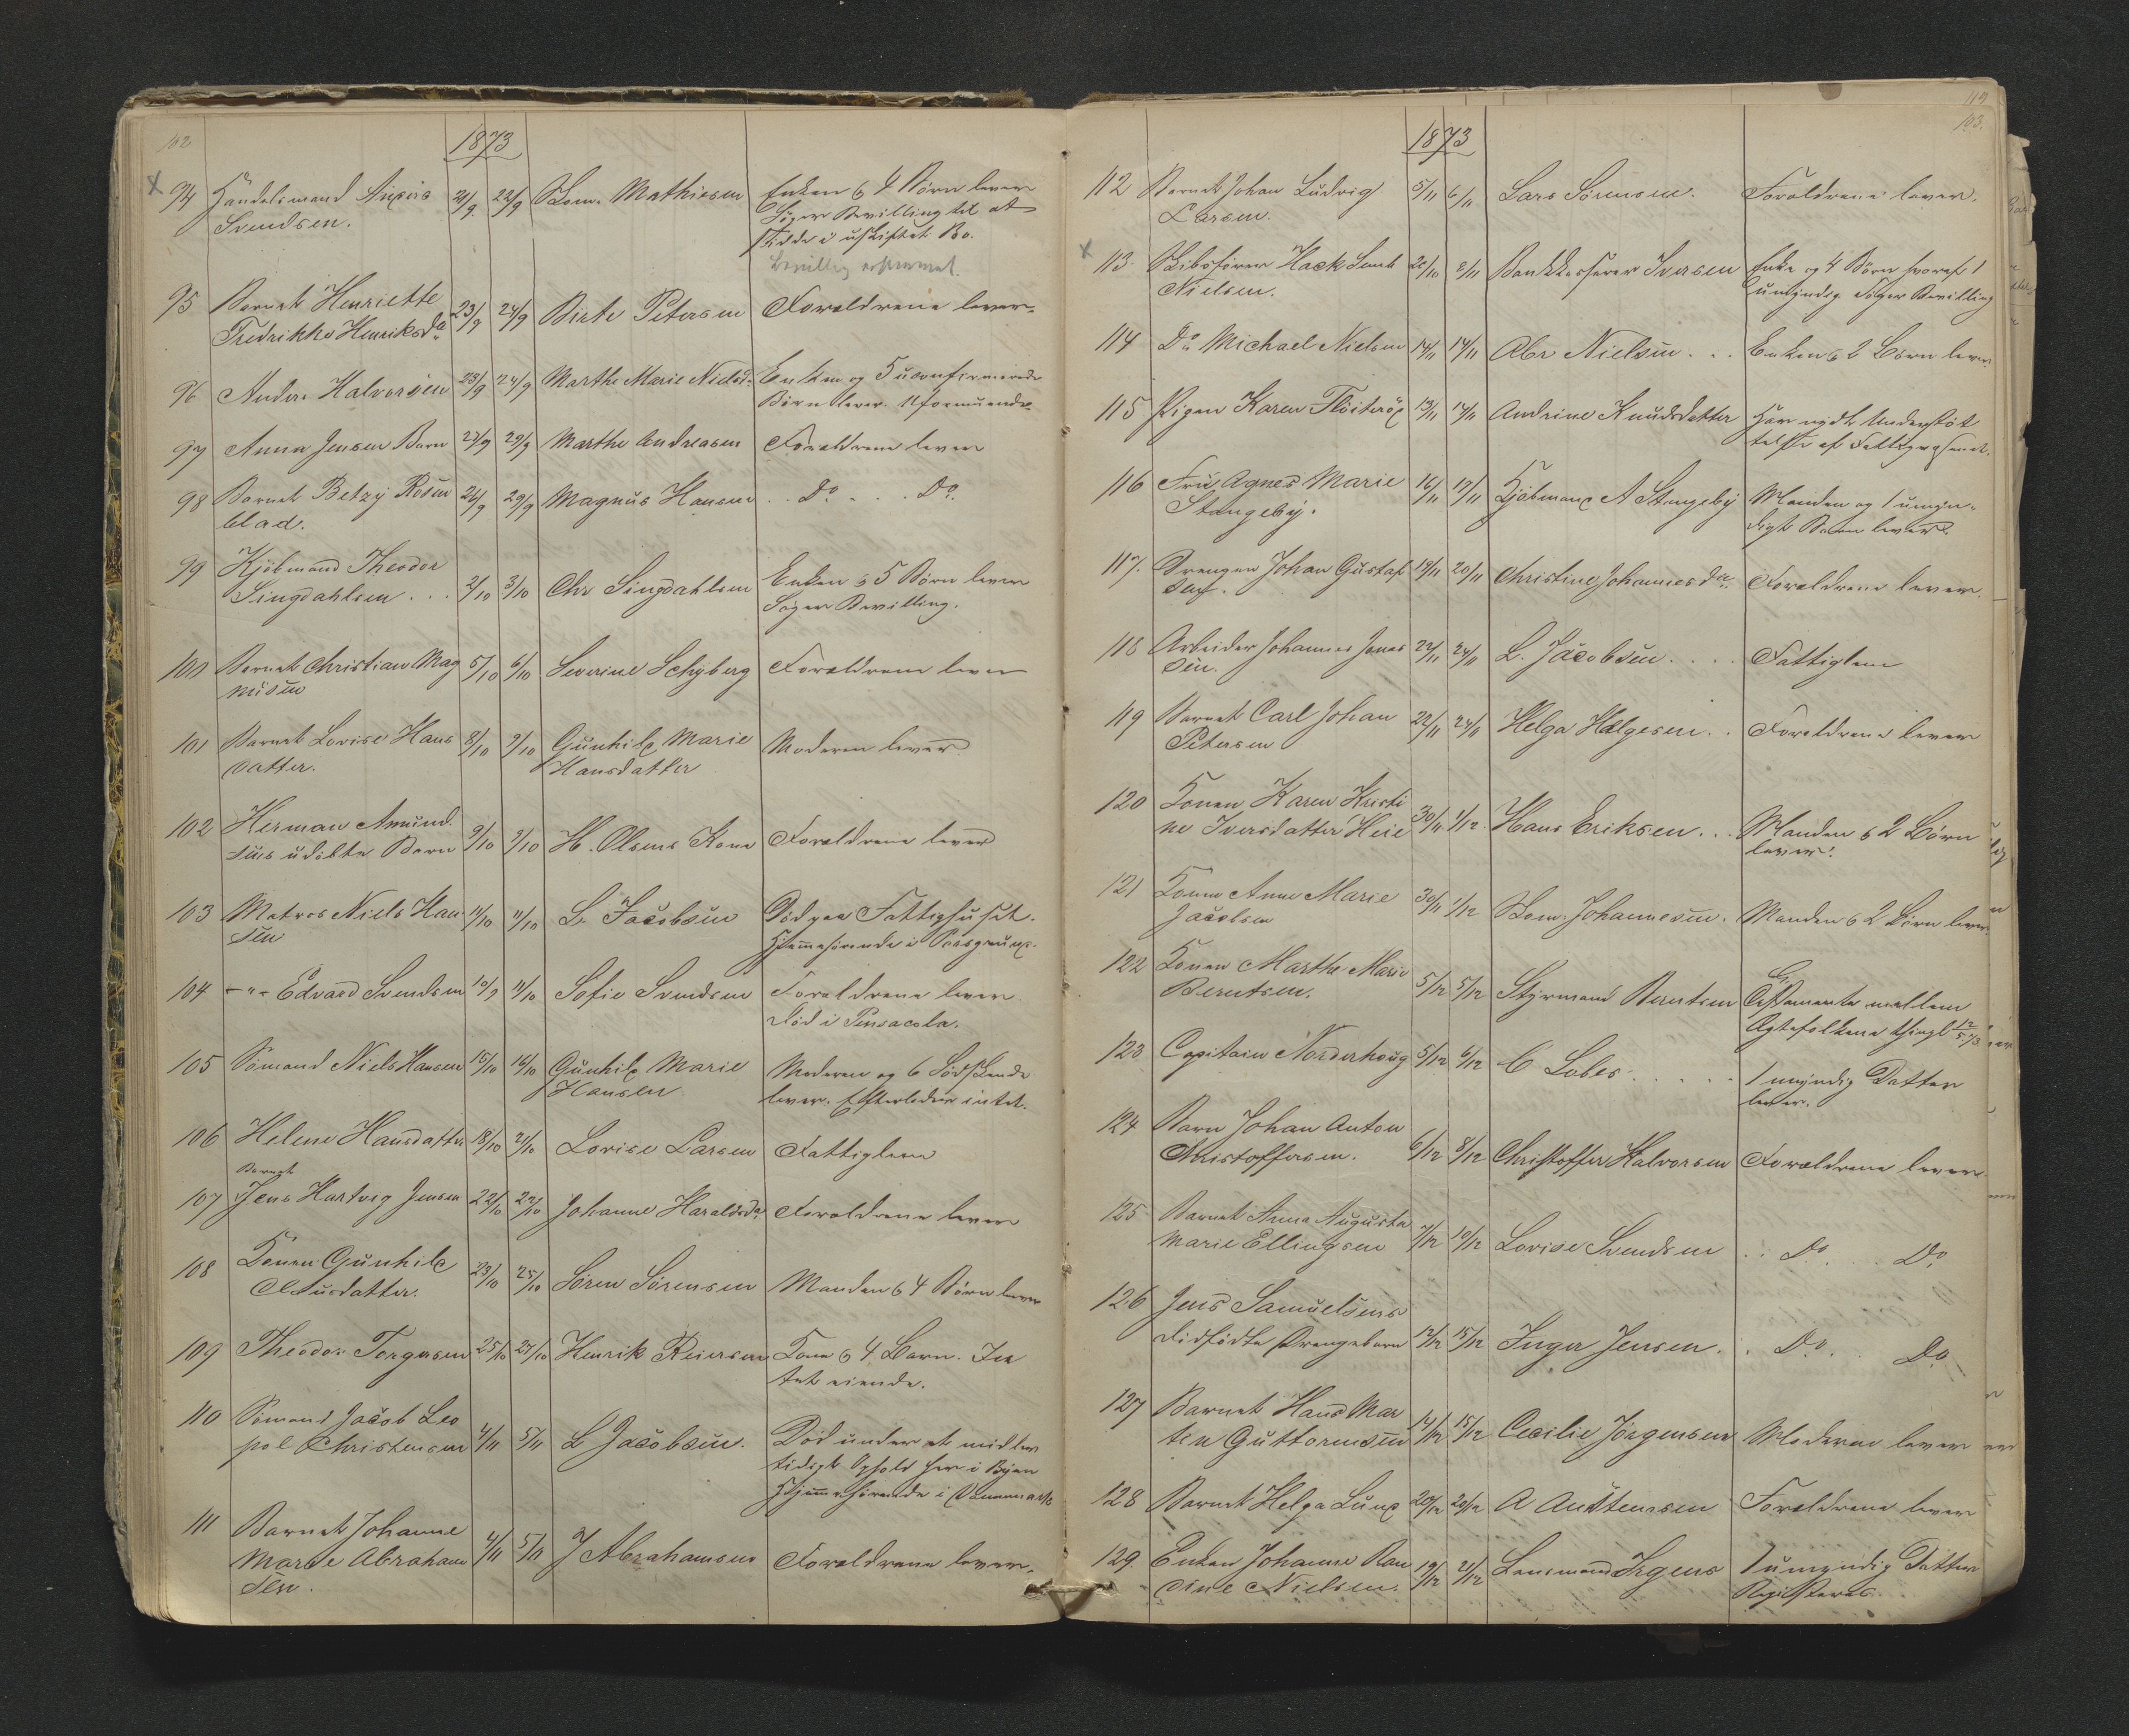 102
1873
94 Handelsmand 21/9 22/9 Thom. Mathiesen Enken & 4 Børn lever
Svendsen. Søger Bevilling til at
sidde i uskiftet Bo.
Bevilling
95 Barnet Henriette 23/9 24/9 Birte Petersen Forældrene lever.
Fredrikke Henriksda
96 Anders Halvorsen 23/9 24/9 Marthe Marie Nielsd. Enken og 5 uconfirmerede
Børn lever. Uformuende
97 Anna Jensen Barn 27/9 29/9 Marthe Andreasen Forældrene lever
98 Barnet Betzy Rosen 24/9 29/9 Magnus Hansen Do Do.
blad.
99 Kjøbmand Theodor
Lingdahlsen 2/10 3/10 Chr Lingdahlsen Enken & 5 Børn lever
Søger Bevilling.
100 Barnet Christian Mag 5/10 6/10 Severine Schyberg Forældrene lever
nusen
101 Barnet Lovise Hans 8/10 9/10 Gunhild Marie Moderen lever
datter. Hansdatter
102 Herman Amund.
sens udøbte Barn 9/10 9/10 H. Olsens Kone Forældrene lever
103 Matros Niels Han 11/10 11/10 L. Jacobsen Død paa Fattighuset.
sen Hjemmehørende i Porsgrund.
104 - " - Edvard Svendsen 10/9 11/10 Sofie Svendsen Forældrene lever
Død i Pensacola.
105 Sømand Niels Hansen 15/10 16/10 Gunhild Marie Moderen og 6 Sødskende
Hansen lever. Efterlader intet.
106 Helene Hansdatter 18/10 21/10 Lovise Larsen Fattiglem
Barnet
107 Jens Hartvig Jensen 22/10 23/10 Johanne Haraldsda. Forældrene lever
108 Konen Gunhild 23/10 25/10 Søren Sørensen Manden & 4 Børn lever
Clausdatter.
109 Theodor Torgersen 25/10 27/10 Henrik Reiersen Kone & 4 Barn. In
tet eiende.
110 Sømand Jacob Leo
pol Christensen 4/11 5/11 L Jacobsen. Død under et midler
tidigt Ophold her i Byen
Hjemmehørende i
111 Barnet Johanne
Marie Abraham 4/11 5/11 J Abrahamsen Forældrene lever.
sen.
103.
1873
112 Barnet Johan Ludvig 5/11 6/11 Lars Sørensen. Forældrene lever.
Larsen.
113. Skibsfører Hack 28/10 2/11 Bankkasserer Iversen Enke og 4 Børn hvoraf 1
Nielsen. umyndig Søger Bevilling
114 Do Michael Nielsen 14/11 14/11 Abr Nielsen Enken & 2 Børn lever
115 Pigen Karen 13/11 14/11 Andrine Knudsdatter Har nydt Understøt
telse af Fattigvæsenet.
116 Fru Agnes Marie 16/11 17/11 Kjøbmand A Stangeby Manden og 1 umyn-
Stangeby. digt Barn lever
117. Drengen Johan Gustaf 19/11 20/11 Christine Johannesda. Forældrene lever.
118 Arbeider Johannes Jonas 22/11 24/11 L. Jacobsen. Fattiglem
sen.
119 Barnet Carl Johan 22/11 24/11 Helga Hælgesen Forældrene lever
Petersen
120 Konen Karen Kristi
ne Iversdatter Heie 30/11 1/12 Hans Eriksen Manden & 2 Børn
lever.
121 Konen Anne Marie 30/11 1/12 Thom. Johannesen. Manden & 2 Børn lever
Jacobsen
122 Konen Marthe Marie
Berntsen. 5/12 5/12 Styrmand Berntsen Testamente mellem
Ægtefolkene
123 Capitain Norderhoug 5/12 6/12 C Lobes 1 myndig Datter
lever.
124 Barn Johan Anton
Christoffersen. 6/12 8/12 Christoffer Halvorsen Forældrene lever
125 Barnet Anna Augusta
Marie Ellingsen 7/12 10/12 Lovise Svendsen Do Do
126 Jens Samuelsens
dødfødte Drengebarn 12/12 15/12 Inger Jensen. Do. Do
127 Barnet Hans Mar
tin Guttormsen 14/12 15/12 Cecilie Jørgensen Moderen lever
128 Barnet Helga Lund 20/12 20/12 A Austensen Forældrene lever
129. Enken Johanne Ran
dine Nielsen. 19/12 21/12 Lensmand Irgens 1 umyndig Datter
Registeres.